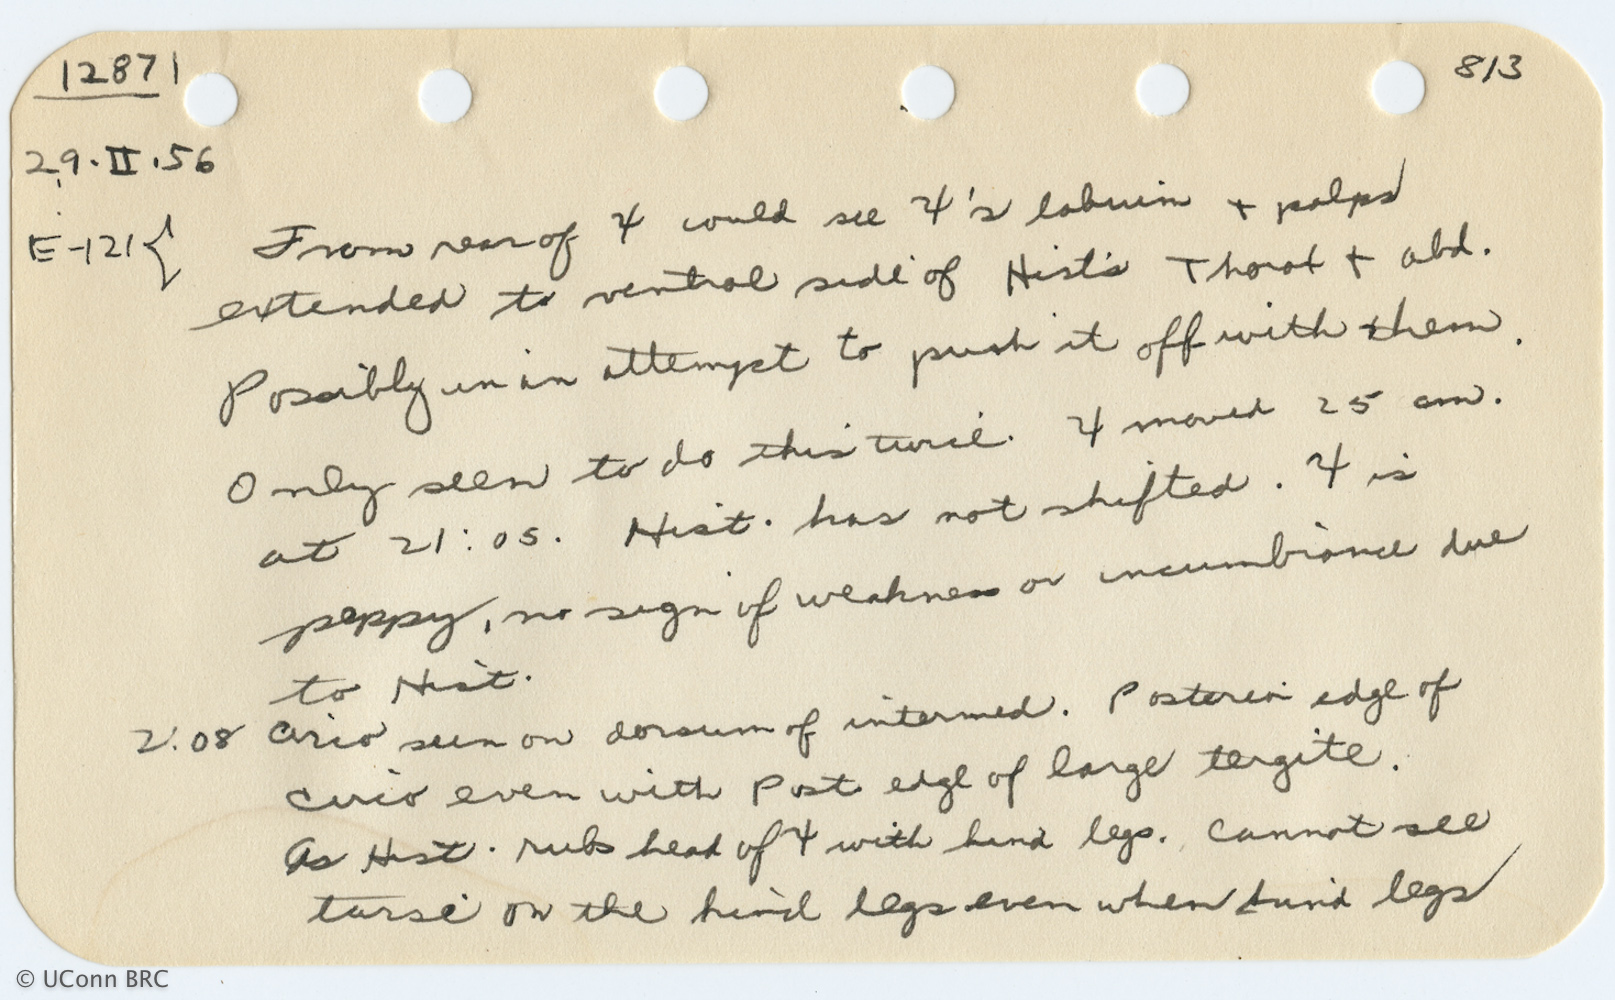 12871 813
29.II.56
E-121{ From rear of ♃ could see ♃'s labrum + palps
extended to ventral side of Hist's Thorax + abd.
Possibly in an attempt to push it off with them.
Only seen to do this twice. ♃ moved 25 cm.
at 21:05. Hist. has not shifted. ♃ is
peppy, no sign of weakness or incumbrance due
to Hist.
2:08 Circo seen on dorsum of intermed. Posterior edge of
circo even with Post edge of large tergite.
As Hist. rubs head of ♃ with hind legs. Cannot see
tarsi on the hind legs even when hind legs
© UConn BRC